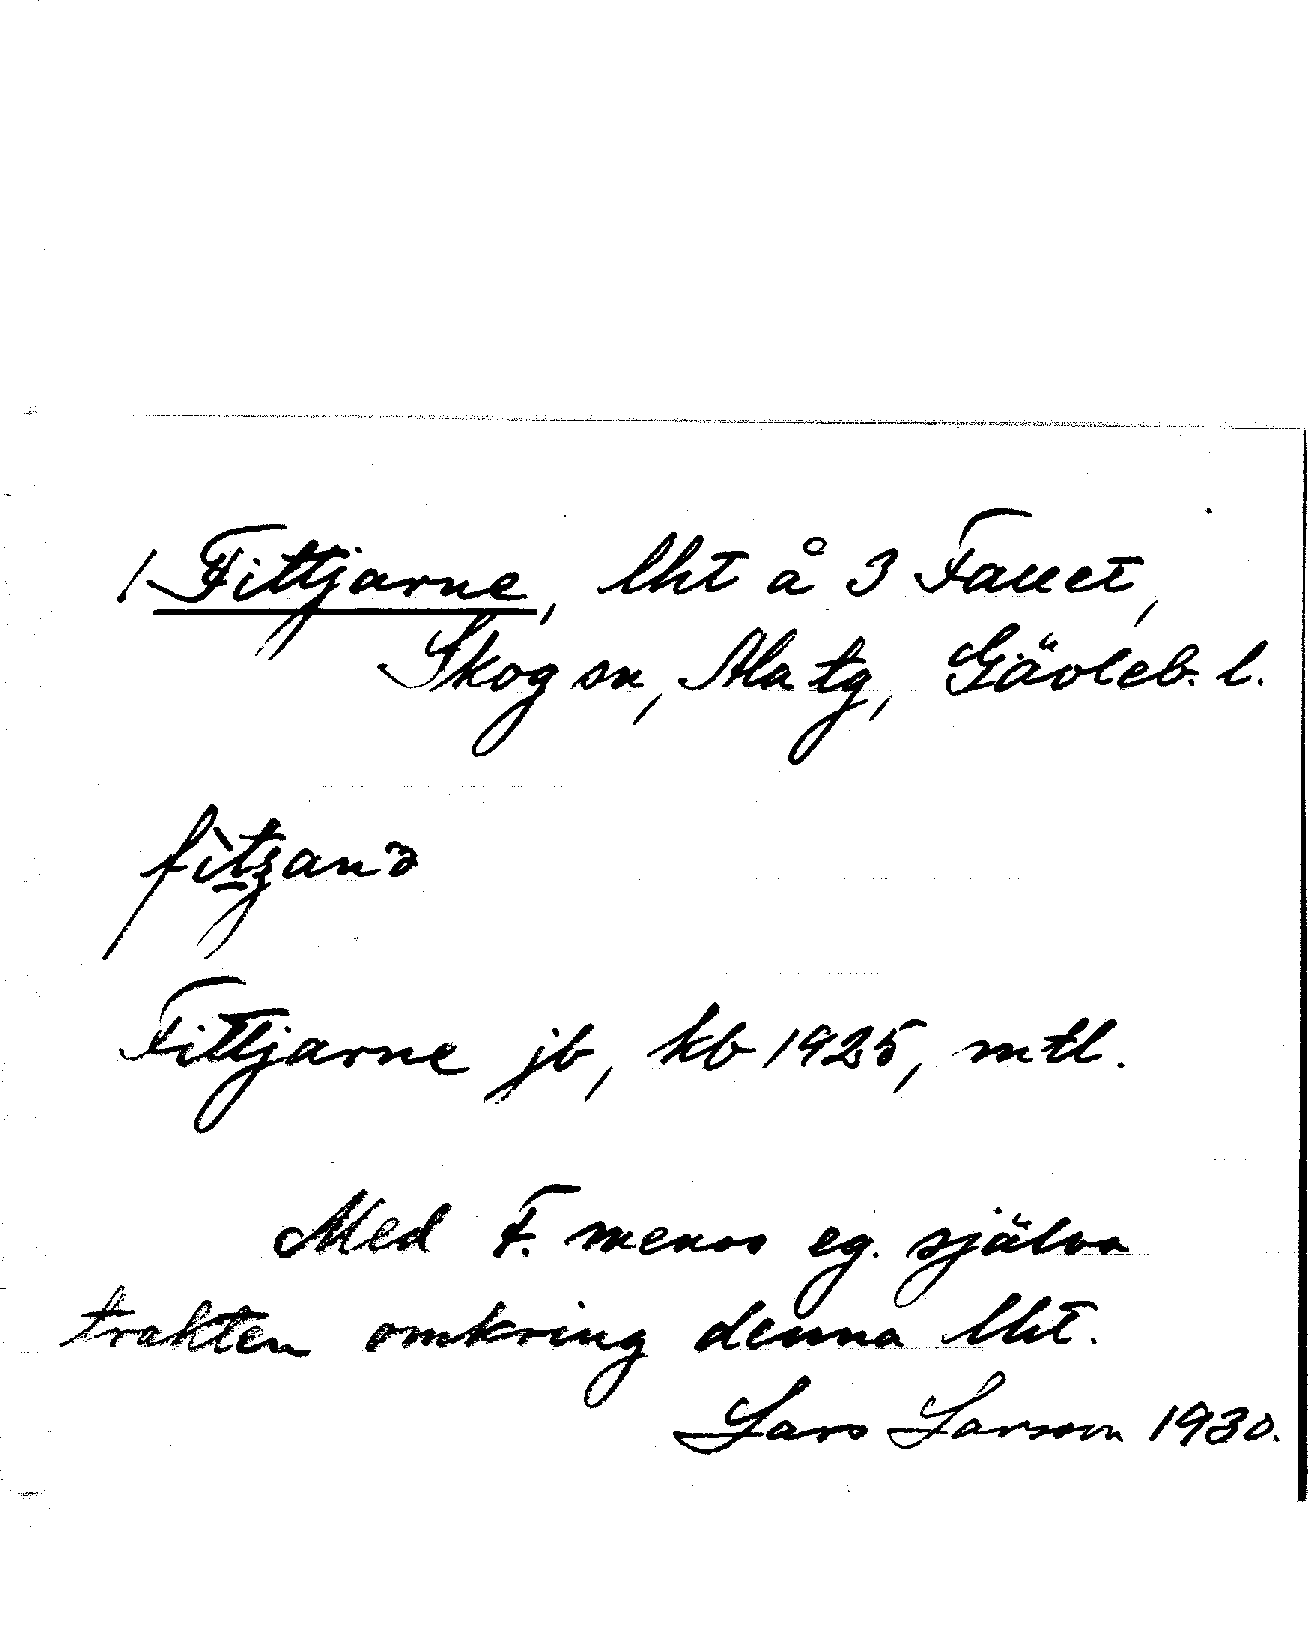 1 Fittjarne, lht å 3 Fallet,
Skog sn, Ala tg, Gävleb. l.
Fittjarne jb, kb 1925, mtl.
Med F. menas eg. själva
trakten omkring denna lht.
Lars Larson 1930.